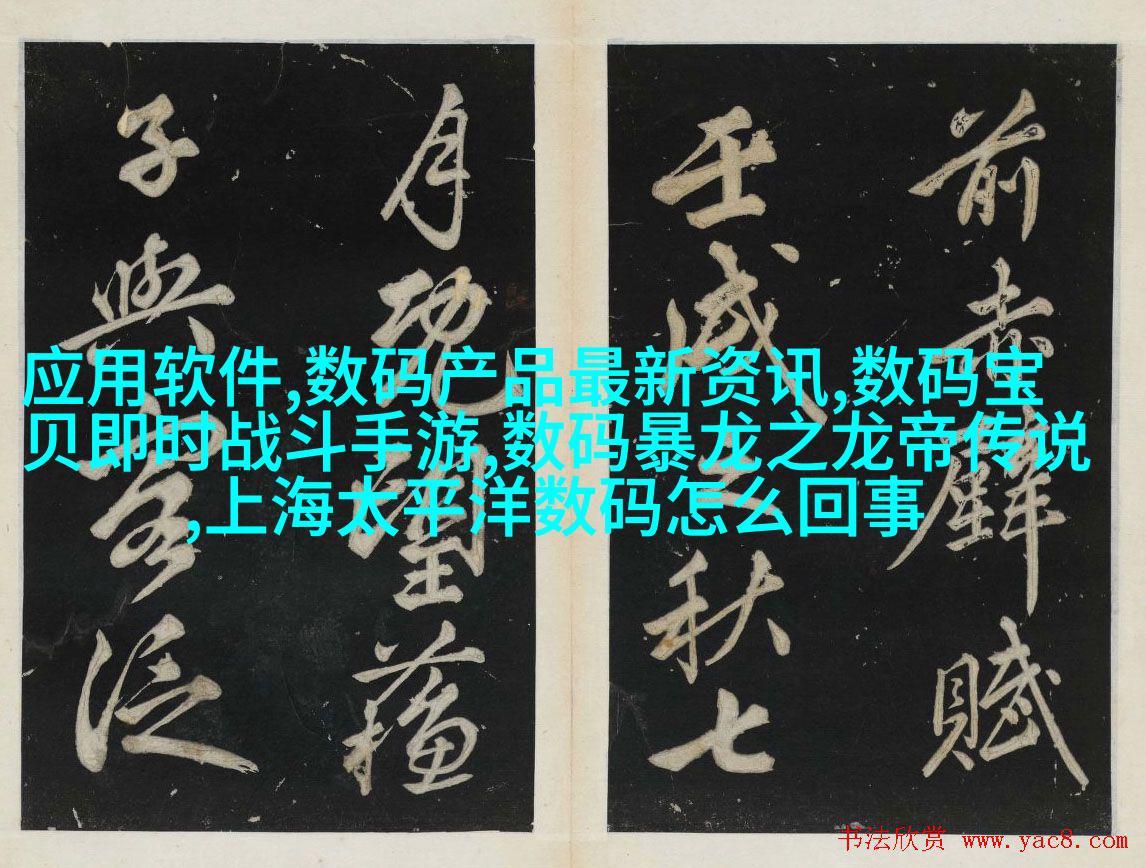 前赤壁賦
壬戌之秋七
月既望蘇
子與客泛
应用软件,数码产品最新资讯,数码宝
贝即时战斗手游,数码暴龙之龙帝传说
,上海太平洋数码怎么回事
书法欣赏 www.yac8.com